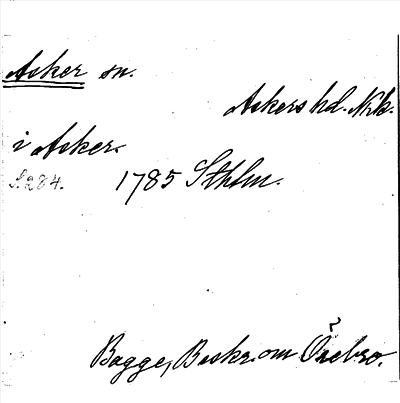 Asker sn.
Askers hd. Nrk.
i Asker.
S. 284.
1785 Sthlm.
Bagge, Beskr. om Örebro.